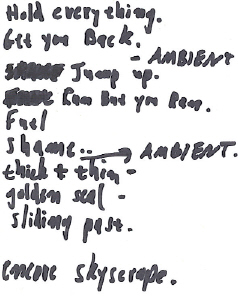 Hold everything.
Get you Back.
- AMBIENT
Jump up.
Run But you Run.
Fuel
Shame.. → AMBIENT.
thick + thin -
golden seal -
sliding past.
encore skyscrape.